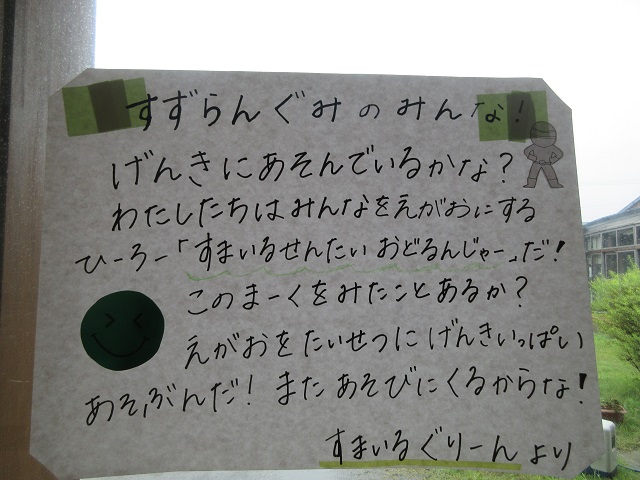 すずらんぐみのみんな!
げんきにあそんでいるかな?
わたしたちはみんなをえがおにする
ひーろー「すまいるせんたいおどるんじゃー」だ!
このまーくをみたことあるか?
えがおをたいせつにげんきいっぱい
あそぶんだ!またあそびにくるからな!
すまいるぐりーんより